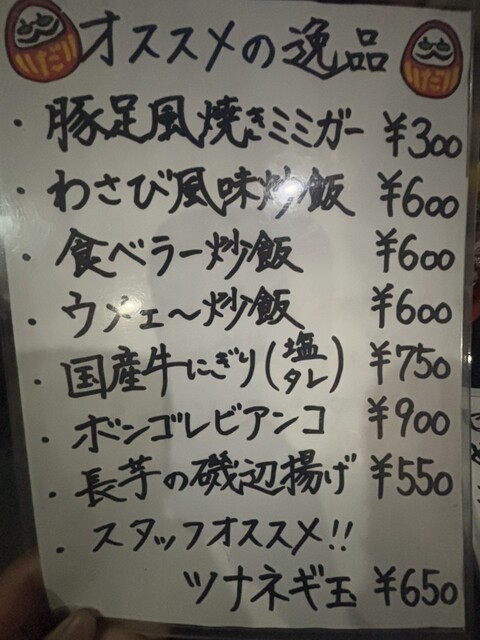 オススメの逸品
・豚足風焼きミミガー ¥300
・わさび風味炒飯 ¥600
・食べラー炒飯 ¥600
・ウェ〜炒飯 ¥600
・国産牛にぎり(塩タレ) ¥750
・ボンゴレビアンコ ¥900
・長芋の磯辺揚げ ¥550
・スタッフオススメ!!
ツナネギ玉 ¥650